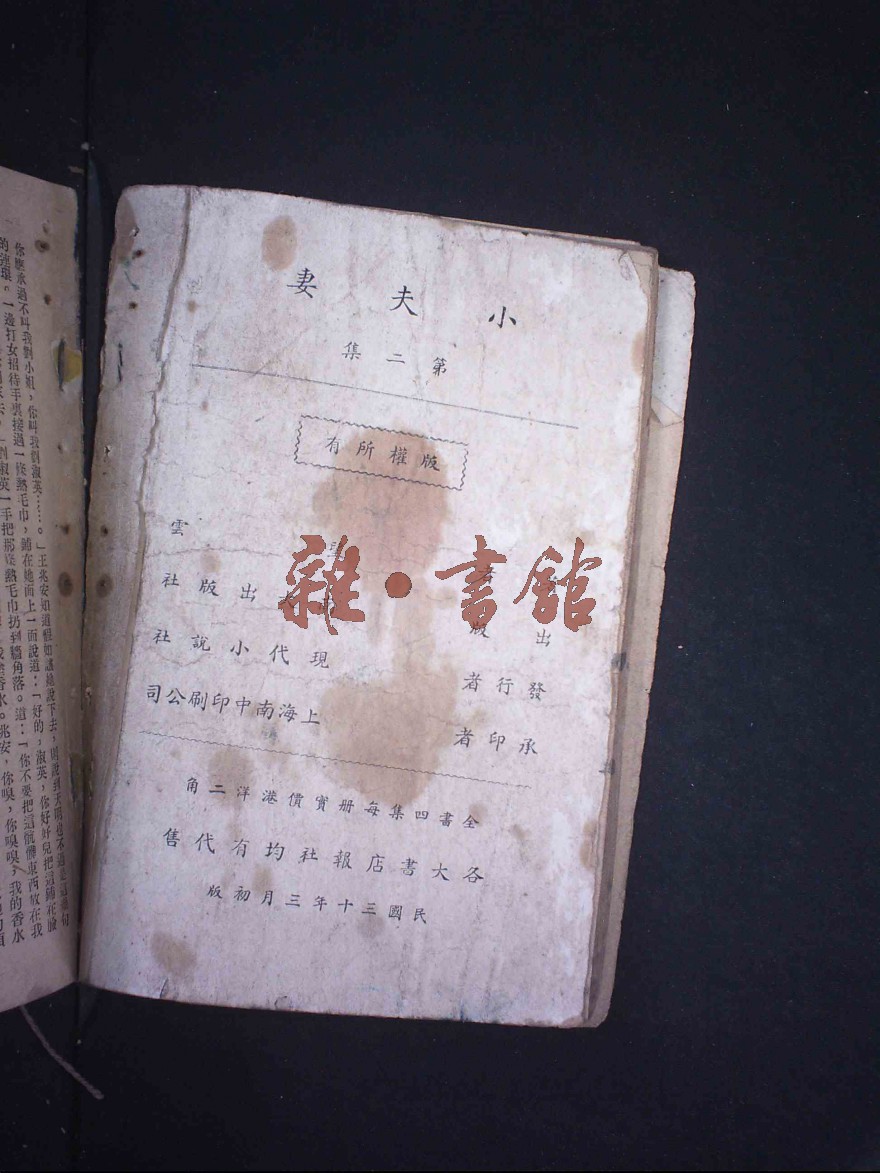 小夫妻
第二集
版權所有
雲
者
出版社
出版
現代小說社
發行者
上海南中印刷公司
承印者
全書四集每册實價港洋二角
各大書店報社均有代售
民國三十年三月初版
雜·書館
你應承過不叫我劉小姐，你叫我們淑英……。」王兆安知道
一邊打女招待手裏接過一條熱毛巾，鋪在她面上一面說道：「好的，淑英，你好好兒把這鋪在臉
一手把那條熱毛巾扔到牆角落。道：「你不要把這骯髒東西放在我
香水。兆安，你嗅，你嗅嗅，我的香水